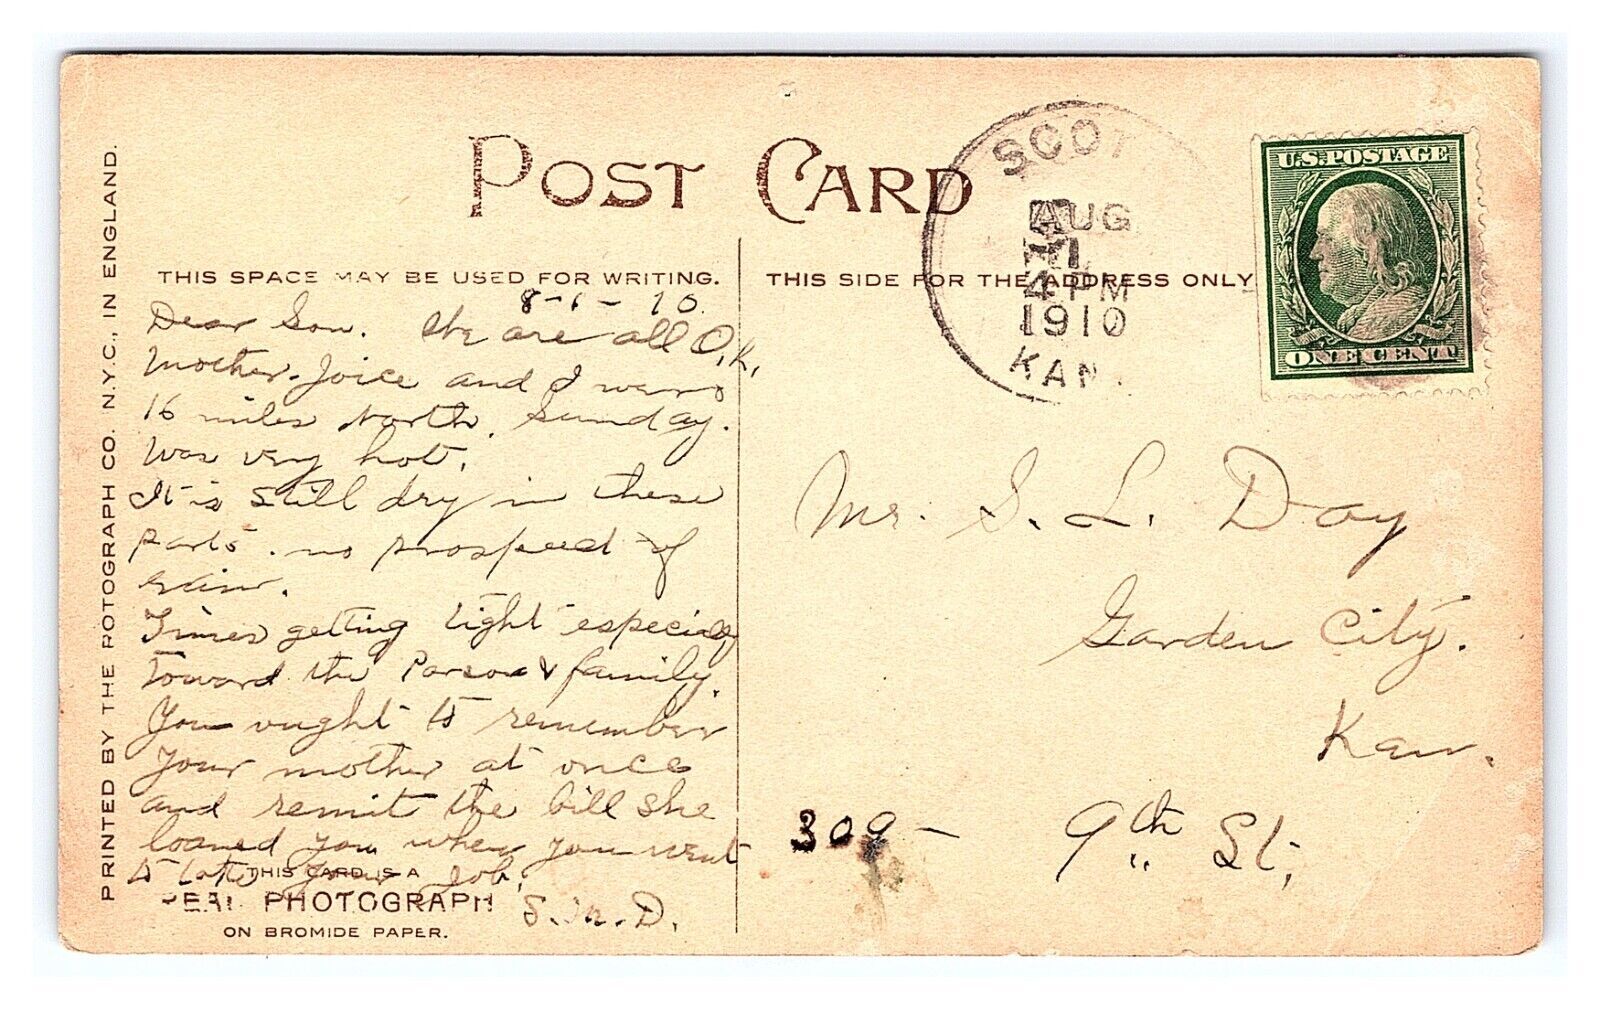 POST CARD
SCOT
AUG
1
4 PM
1910
KAN.
U.S. POSTAGE
ONE CENT
THIS SPACE MAY BE USED FOR WRITING.
THIS SIDE FOR THE ADDRESS ONLY
PRINTED BY THE ROTOGRAPH CO. N.Y.C., IN ENGLAND.
8-1-10.
Dear Son. We are all O.K.
Mother. Joice and I were
16 miles North. Sunday.
Was very hot.
It is still dry in these
parts. no prospect of
rain.
Times getting tight especially
toward the Parson & family.
You ought to remember
your mother at once
and remit the bill she
loaned you when you went
to take your job.
S. M. D.
THIS CARD IS A
REAL PHOTOGRAPH
ON BROMIDE PAPER.
Mr. S. L. Day
Garden City.
Kan.
309 - 9th St,